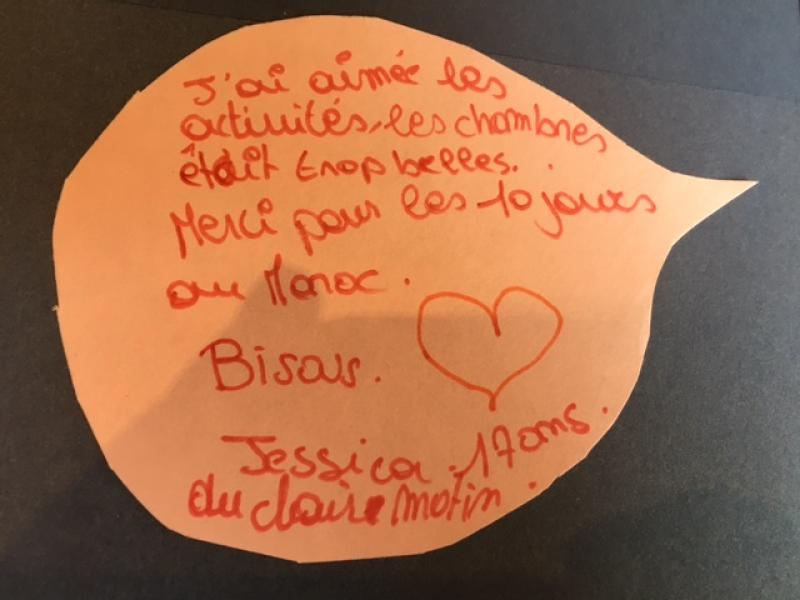 J'ai aimée les
activités, les chambres
était trop belles.
Merci pour les 10 jours
au Maroc.
Bisous.
Jessica. 17 ans.
du clair matin.